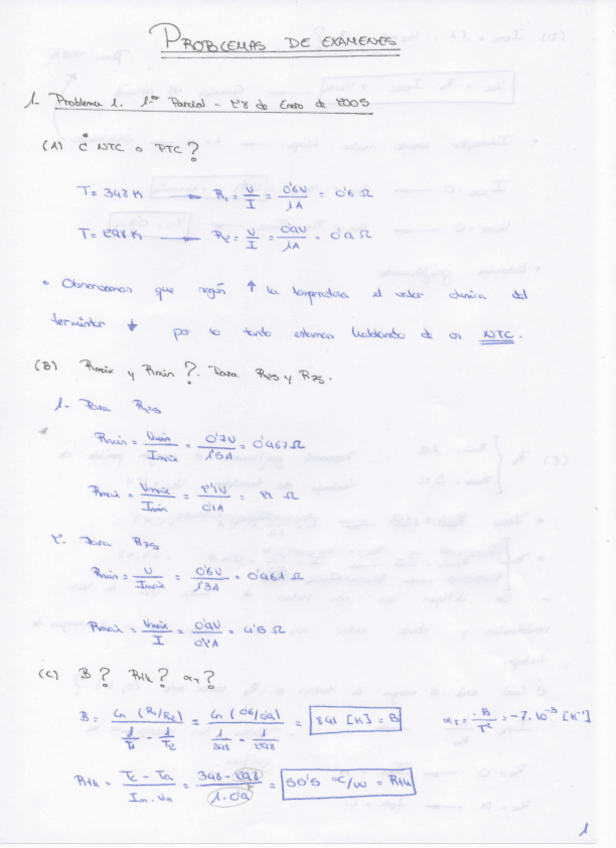 PROBLEMAS DE EXAMENES
1- Problema 1. 1er Parcial - 28 de Enero de 2005
(A) ¿ NTC o PTC ?
T = 348 K → R₁ = V/I = 0'6V/1A = 0'6 Ω
T = 298 K → R₂ = V/I = 0'9V/1A = 0'9 Ω
• Observamos que según ↑ la temperatura el valor ohmico del
termistor ↓ por lo tanto estamos hablando de un NTC.
(B) Rmax y Rmin ?. Para R25 y R75.
1- Para R25
Rmin = Vmin/Imax = 0'7V/1'5A = 0'467 Ω
Rmax = Vmax/Imin = 2'2V/0'1A = 22 Ω
2- Para R75
Rmin = V/Imax = 0'6V/1'3A = 0'461 Ω
Rmax = Vmax/I = 0'9V/0'2A = 4'5 Ω
(C) B ? Rth ? αT ?
B = Ln (R1/R2) / (1/T1 - 1/T2) = Ln (0'6/0'9) / (1/348 - 1/298) = 841 [K] = B αT = -B/T² = -7.10⁻³ [K⁻¹]
Rth = (Tc - Ta)/(Im . Vm) = (348 - 298)/(1 . 0'9) = 55'5 ºC/W = Rth
1